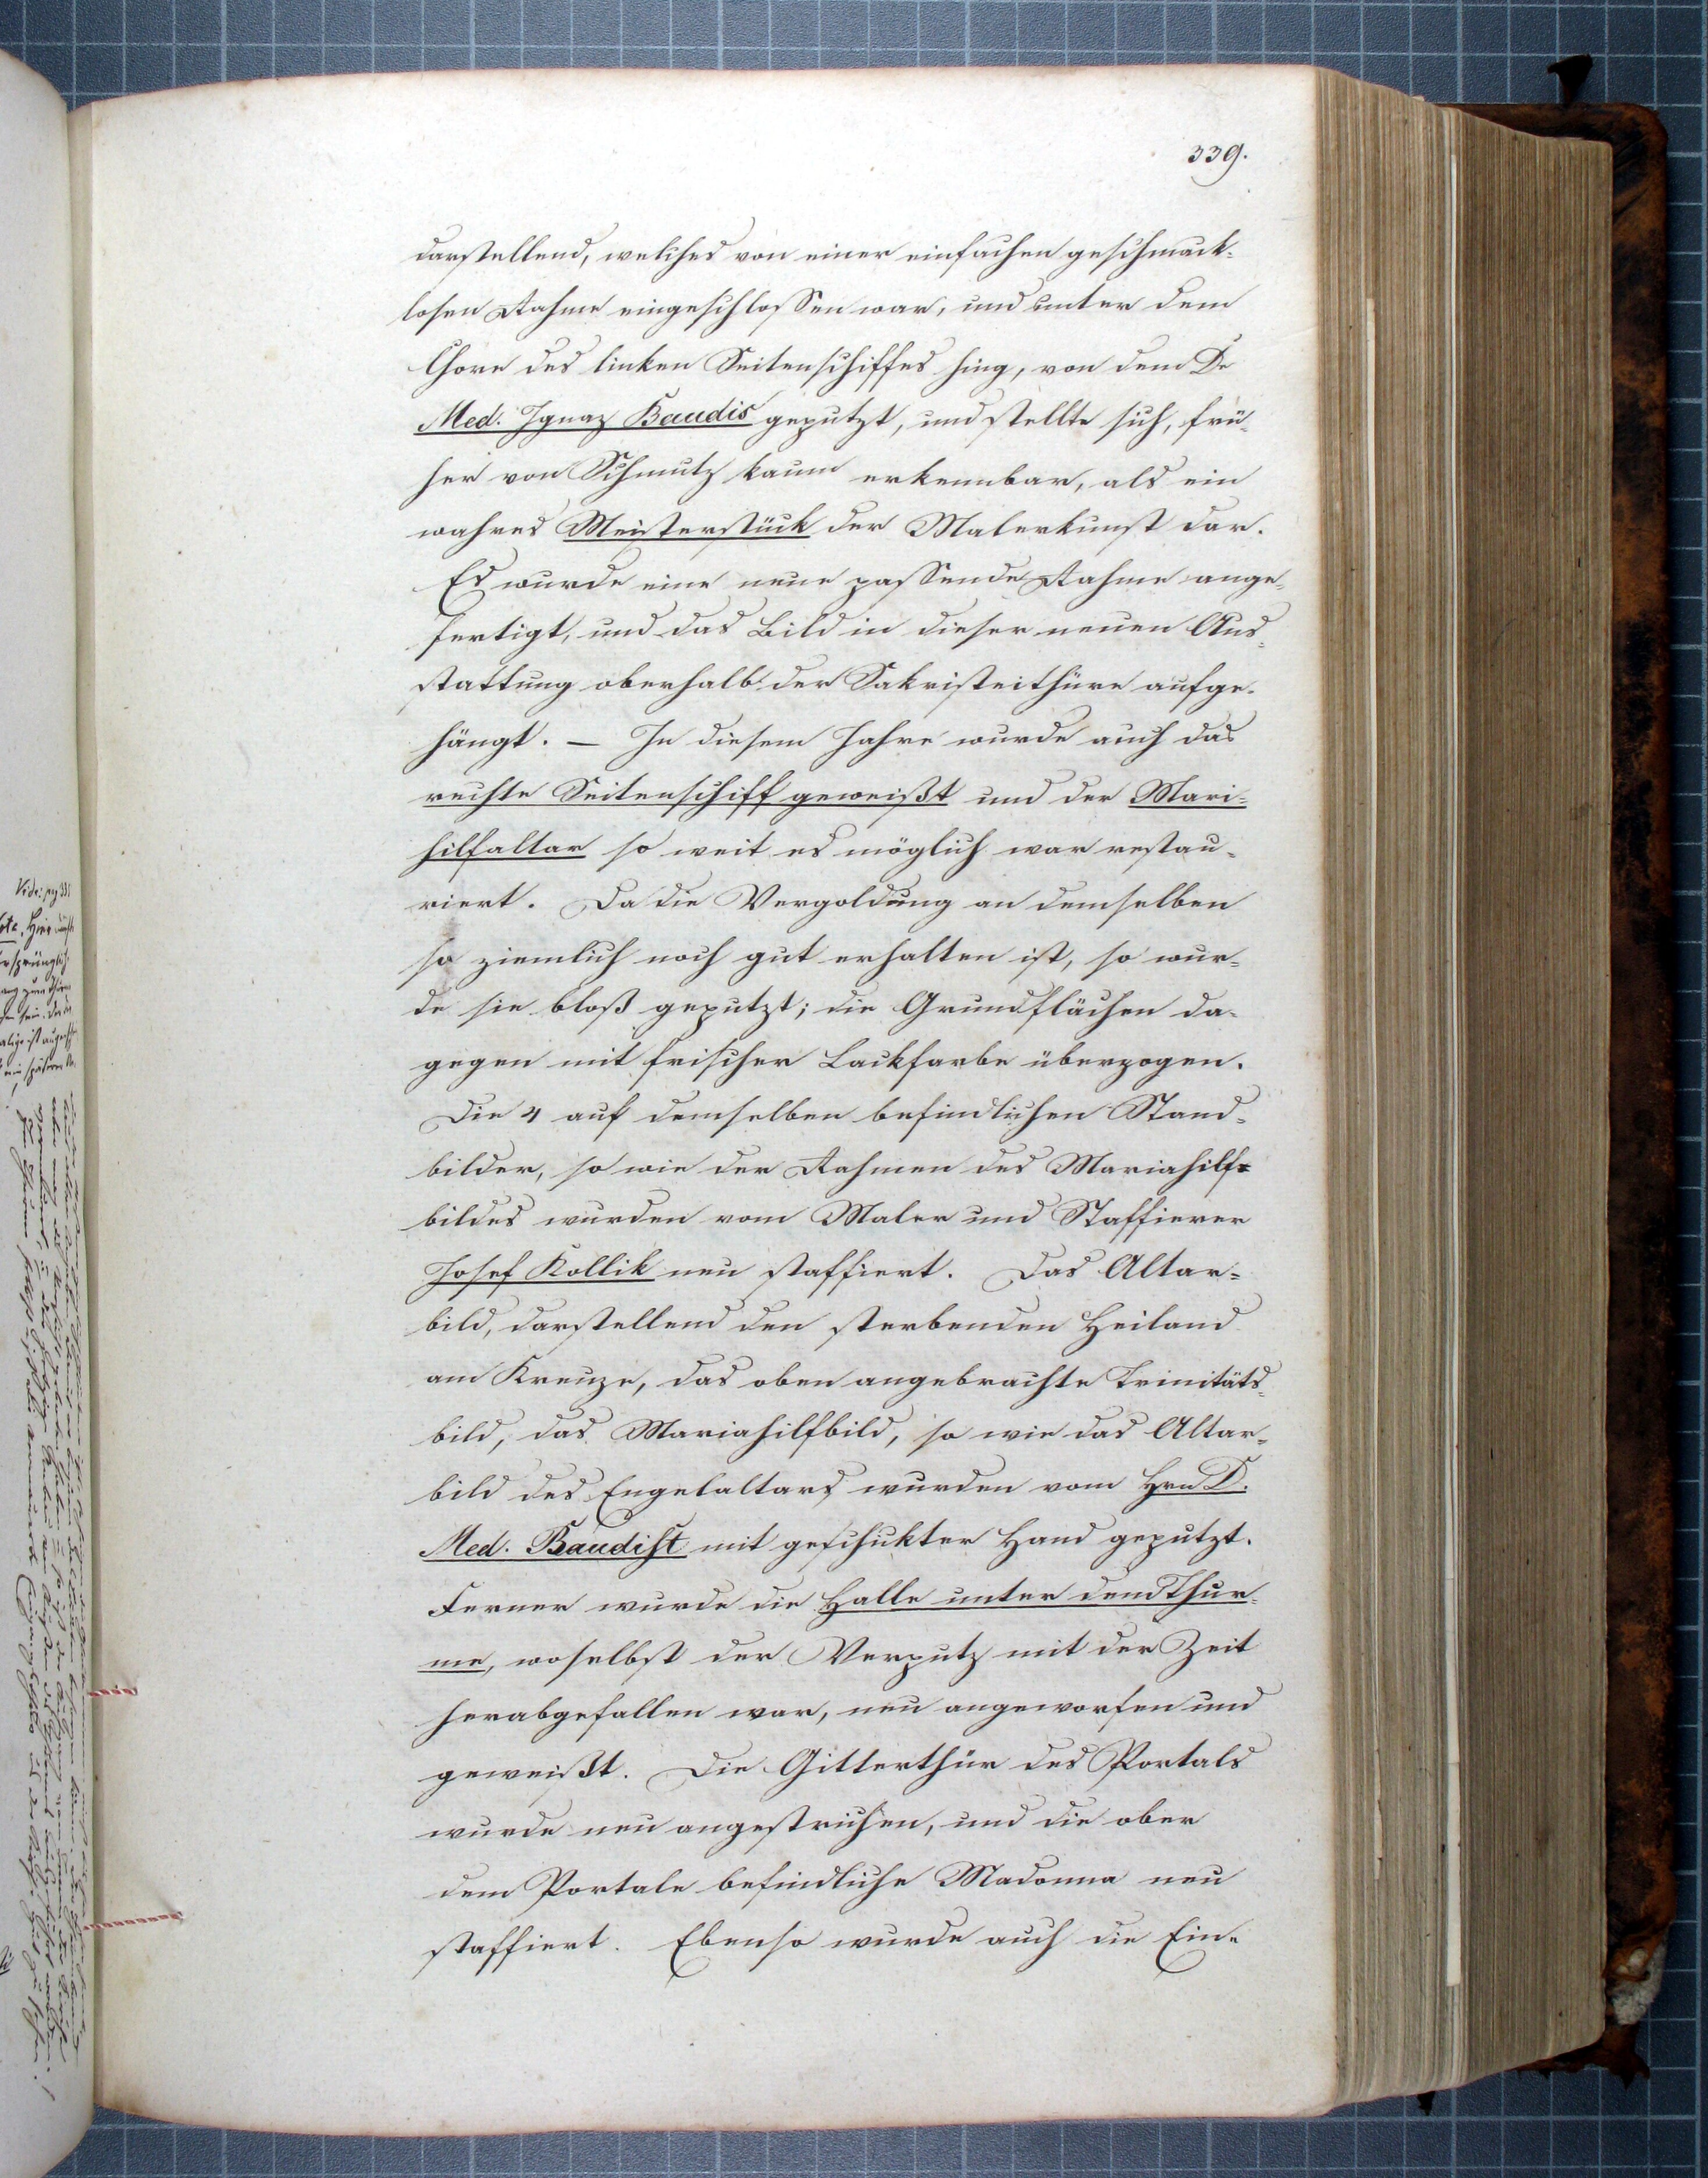 339.
darstellend, welches von einer einfachen geschmack-
losen Rahme eingeschlossen war, und unter dem
Chore des linken Seitenschiffes hing, von dem Dr
Med. Ignaz Baudis geputzt, und stellte sich, frü-
her von Schmutz kaum erkennbar, als ein
wahres Meisterstück der Malerkunst dar.
Es wurde eine neue passende Rahme ange-
fertigt, und das Bild in dieser neuen Aus-
stattung oberhalb der Sakristeithüre aufge-
hängt. — In diesem Jahre wurde auch das
rechte Seitenschiff geweißt und der Mari-
hilfaltar so weit es möglich war restau-
riert. Da die Vergoldung an demselben
so ziemlich noch gut erhalten ist, so wur-
de sie bloß geputzt; die Grundflächen da-
gegen mit frischer Lackfarbe überzogen.
Die 4 auf demselben befindlichen Stand-
bilder, so wie der Rahmen des Mariahilf-
bildes wurden vom Maler und Staffierer
Josef Kollik neu staffiert. Das Altar-
bild, darstellend den sterbenden Heiland
am Kreuze, das oben angebrachte Trinitäts-
bild, das Mariahilfbild, so wie das Altar-
bild des Engelaltars wurden vom Hrn D.
Med. Baudist mit geschikter Hand geputzt.
Ferner wurde die Halle unter dem Thur-
me, woselbst der Verputz mit der Zeit
herabgefallen war, neu angeworfen und
geweißt. Die Gitterthür des Portals
wurde neu angestrichen, und die ober
dem Portale befindliche Madonna neu
staffiert. Ebenso wurde auch die Ein-